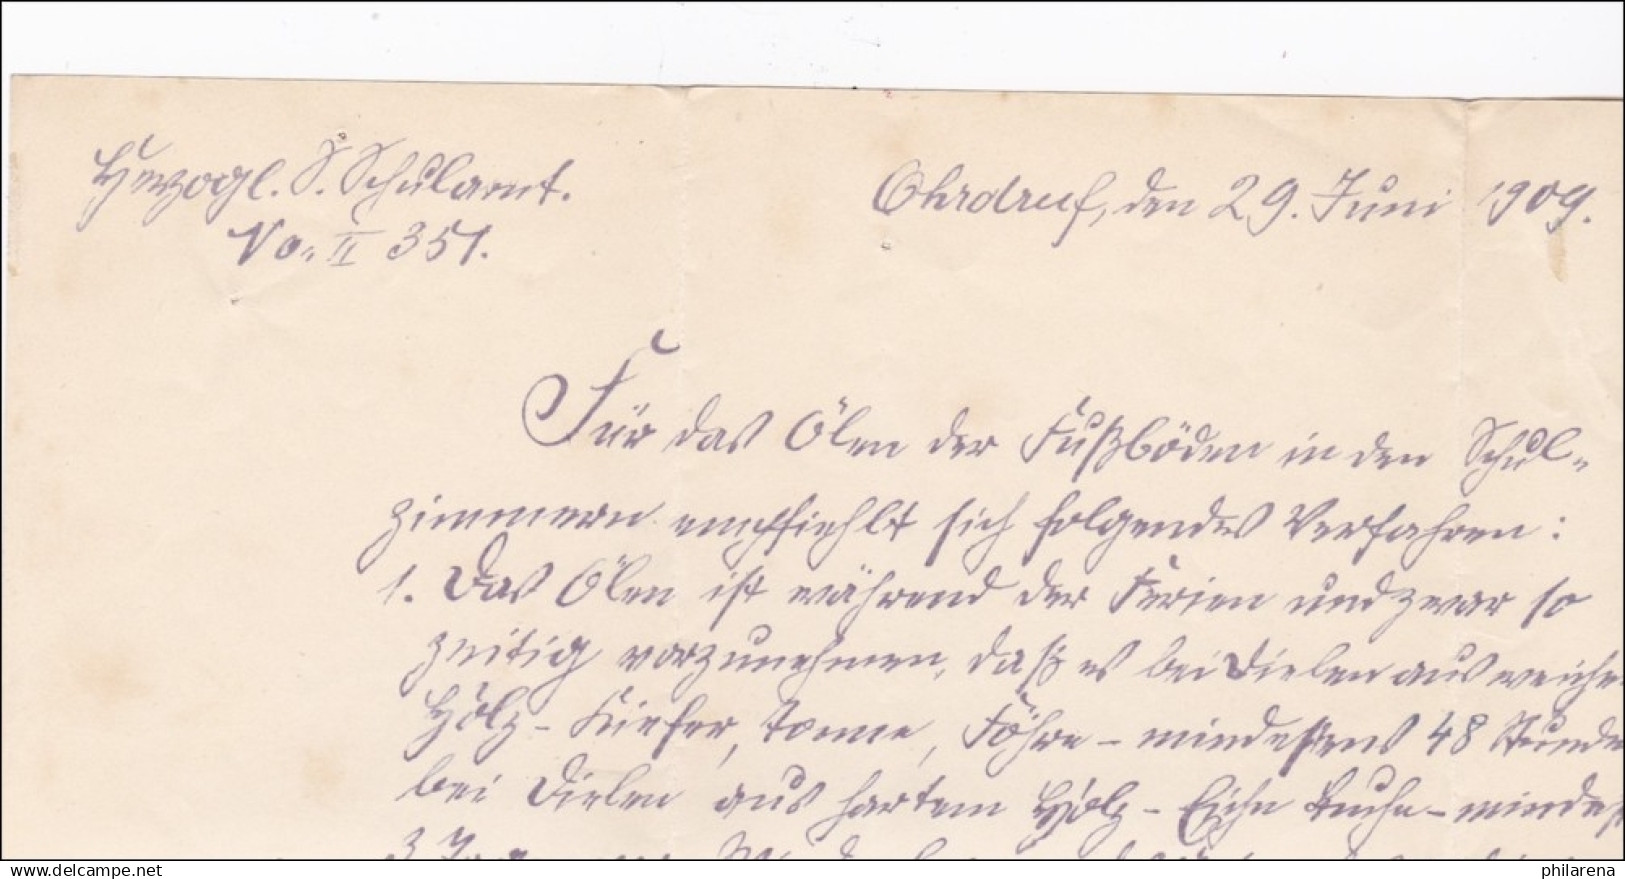 Herzogl. S. Schulamt.
Ohrdruf, den 29. Juni 1909.
No. II 351.
Für das Ölen der Fußböden in den Schul-
zimmern empfiehlt sich folgendes Verfahren:
1. Das Ölen ist während der Ferien und zwar so
zeitig vorzunehmen, daß es bei Dielen aus weiche
Holz - Kiefer, Tanne, Föhre - mindestens 48 Stunde
bei Dielen aus hartem Holz - Eiche Buche - mindest
3 Tage
philarena